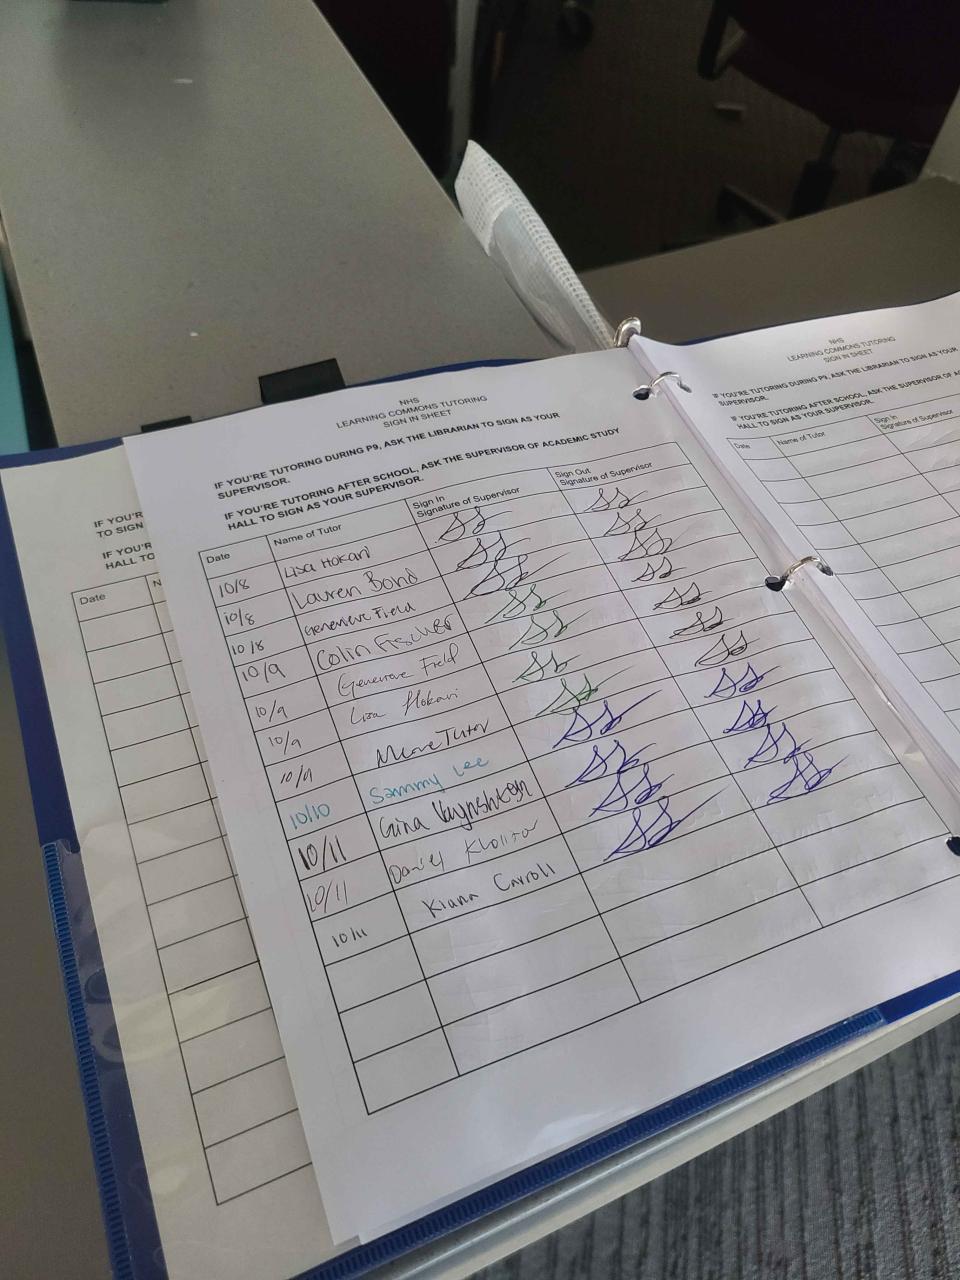 NHS
LEARNING COMMONS TUTORING
SIGN IN SHEET
IF YOU'RE TUTORING DURING P9, ASK THE LIBRARIAN TO SIGN AS YOUR
SUPERVISOR.
IF YOU'RE TUTORING AFTER SCHOOL, ASK THE SUPERVISOR OF ACADEMIC STUDY
HALL TO SIGN AS YOUR SUPERVISOR.
Date Name of Tutor Sign In Signature of Supervisor Sign Out Signature of Supervisor
10/8 Lisa Hokari
10/8 Lauren Bond
10/8 Genevieve Field
10/9 Colin Fischer
10/9 Genevieve Field
10/9 Lisa Hokari
10/9 Tutor
10/10 Sammy Lee
10/11 Gina
10/11 Daniel
10/11 Kiana Carroll
IF YOU'R
TO SIGN
IF YOU'R
HALL TO
Date N
NHS
LEARNING COMMONS TUTORING
SIGN IN SHEET
IF YOU'RE TUTORING DURING P9, ASK THE LIBRARIAN TO SIGN AS YOUR
SUPERVISOR.
IF YOU'RE TUTORING AFTER SCHOOL, ASK THE SUPERVISOR OF
HALL TO SIGN AS YOUR SUPERVISOR.
Date Name of Tutor Sign In Signature of Supervisor